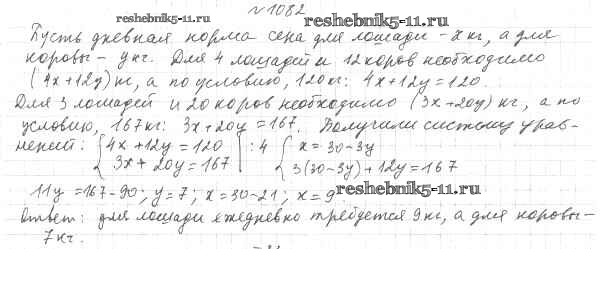 №1082
reshebnik5-11.ru reshebnik5-11.ru
Пусть дневная норма сена для лошади - x кг, а для
коровы - y кг. Для 4 лошадей и 12 коров необходимо
(4x+12y) кг, а по условию, 120 кг: 4x+12y=120.
Для 3 лошадей и 20 коров необходимо (3x+20y) кг, а по
условию, 167 кг: 3x+20y=167. Получили систему урав-
нений: { 4x+12y=120 | :4 { x=30-3y
3x+20y=167 3(30-3y)+12y=167
11y=167-90; y=7; x=30-21; x=9. reshebnik5-11.ru
Ответ: для лошади ежедневно требуется 9 кг, а для коровы -
7 кг.